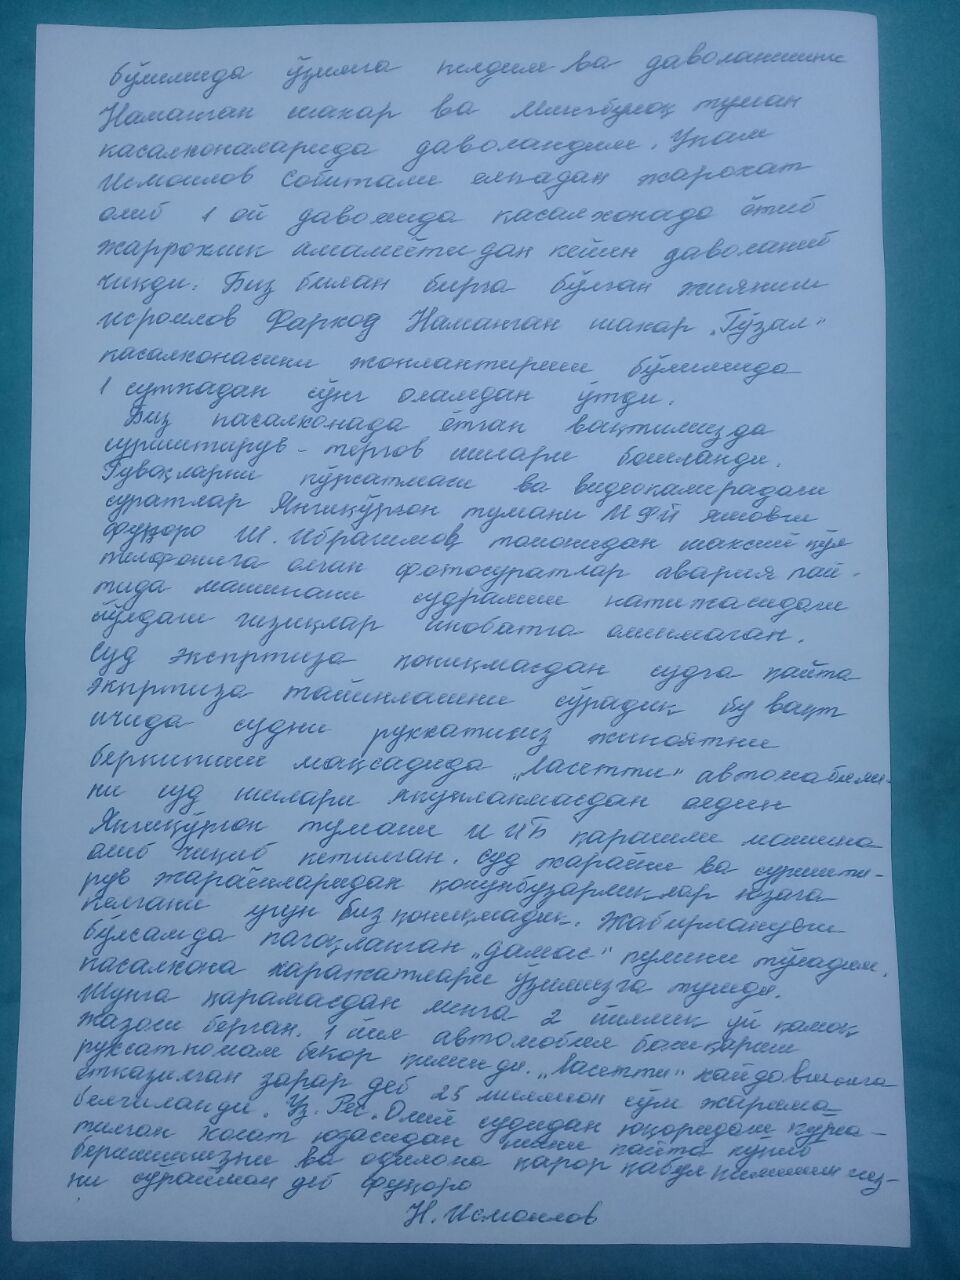 бўлимида ўзимга келдим ва даволанишни
Наманган шахар ва Мингбулоқ туман
касалхоналарида даволандим. Укам
Исмоилов Собитали елкадан жарохат
олиб 1 ой давомида касалхонада ётиб
жаррохлик амалиётидан кейин даволаниб
чикди. Биз билан бирга бўлган жияним
Исроилов Фарход Наманган шахар „Гўзал"
касалхонасини жонлантириш бўлимида
1 суткадан сўнг оламдан ўтди.
Биз касалхонада ётган вақтимизда
суриштирув - тергов ишлари бошланди.
Гувохларни кўрсатмаси ва видеокамерадаги
суратлар Янгиқўрғон тумани МФЙ яшовчи
фуқаро Ш. Иброгимов томонидан шахсий қўл
телфонига олган фотосуратлар авария пай-
тида машинани судралиш натижасидаги
йўлдаги чизиқлар инобатга олинмаган.
Суд экспртиза қониқмасдан судга қайта
экпртиза тайинлашни сўрадик бу вақт
ичида судни рухсатисиз жиноятни
беркитиш мақсадида „Ласетти" автомабили-
ни суд ишлари якунланмасдан олдин
Янгиқўрғон тумани ИИБ қарашли машина
олиб чиқиб кетилган. Суд жараёни ва суришти-
рув жараёнларидан қонунбузарликлар юзага
келгани учун биз қониқмадик. Жабирланувчи
бўлсамда пачоқланган „дамас" пулини тўладим.
касалхона харажатлари ўзимизга тушди.
Шунга қарамасдан менга 2 йиллик уй қамоқ
жазоси берган. 1 йил автомобил бошқариш
рухсатномам бекор қилинди. „Ласетти" хайдовчисига
етказилган зарар деб 25 миллион сўм жарима
белгиланди. Ўз. Рес. Олий судидан юқоридаги кўрса-
тилган холат юзасидан ишни қайта кўриб
беришингизни ва одилона қарор қабул қилишингиз-
ни сўрайман деб фуқаро
Н. Исмоилов